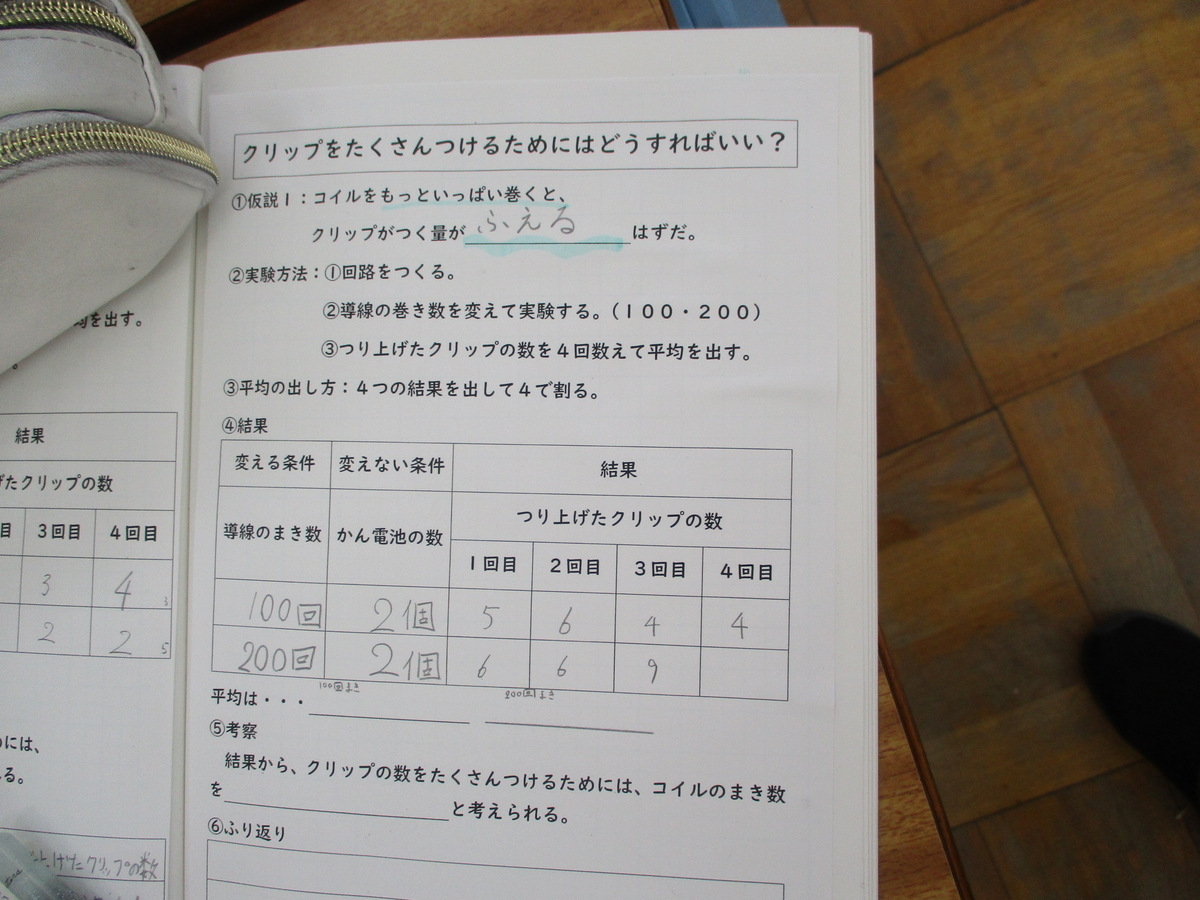 クリップをたくさんつけるためにはどうすればいい？
①仮説１：コイルをもっといっぱい巻くと、
クリップがつく量が ふえる はずだ。
②実験方法：①回路をつくる。
②導線の巻き数を変えて実験する。（１００・２００）
③つり上げたクリップの数を４回数えて平均を出す。
③平均の出し方：４つの結果を出して４で割る。
④結果
変える条件 変えない条件 結果
導線のまき数 かん電池の数 つり上げたクリップの数
１回目 ２回目 ３回目 ４回目
100回 2個 5 6 4 4
200回 2個 6 6 9
100回まき 200回まき
平均は・・・
⑤考察
結果から、クリップの数をたくさんつけるためには、コイルのまき数
を と考えられる。
⑥ふり返り
を出す。
結果
たクリップの数
目 ３回目 ４回目
3 4 3
2 2 5
には、
る。
上げたクリップの数